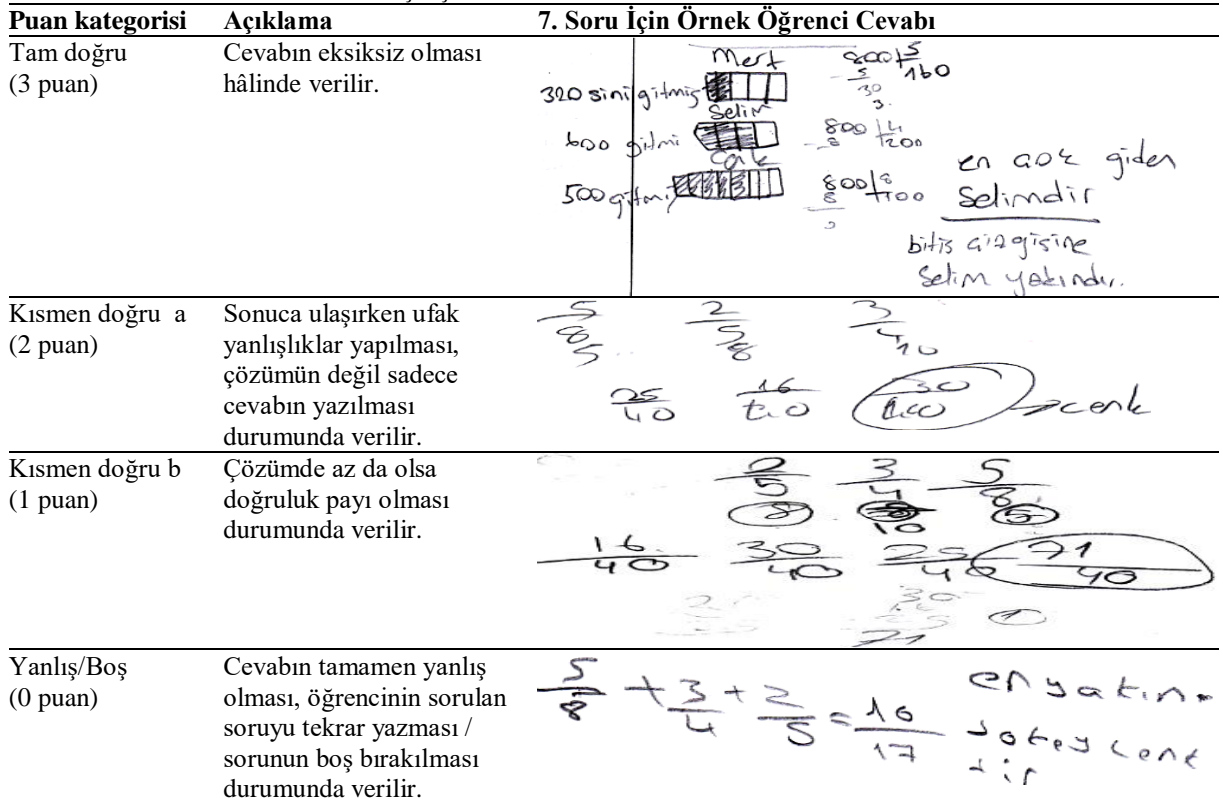 Puan kategorisi Açıklama 7. Soru İçin Örnek Öğrenci Cevabı
Tam doğru Cevabın eksiksiz olması
(3 puan) hâlinde verilir.
Mert 800 5
5 160
30
320 sini gitmiş
Selim
600 gitmi 800 4
8 200
Cenk
500 gitmiş 800 8
8 100
en çok giden
Selimdir
bitiş çizgisine
Selim yakındır.
Kısmen doğru a Sonuca ulaşırken ufak
(2 puan) yanlışlıklar yapılması,
çözümün değil sadece
cevabın yazılması
durumunda verilir.
5 2 3
8 5 4
5 8 10
25 16 30
40 40 40 → cenk
Kısmen doğru b Çözümde az da olsa
(1 puan) doğruluk payı olması
durumunda verilir.
2 3 5
5 4 8
8 10 5
16 30 25 71
40 40 40 40
71
Yanlış/Boş Cevabın tamamen yanlış
(0 puan) olması, öğrencinin sorulan
soruyu tekrar yazması /
sorunun boş bırakılması
durumunda verilir.
5 + 3 + 2 = 10
8 4 5 17
en yakın